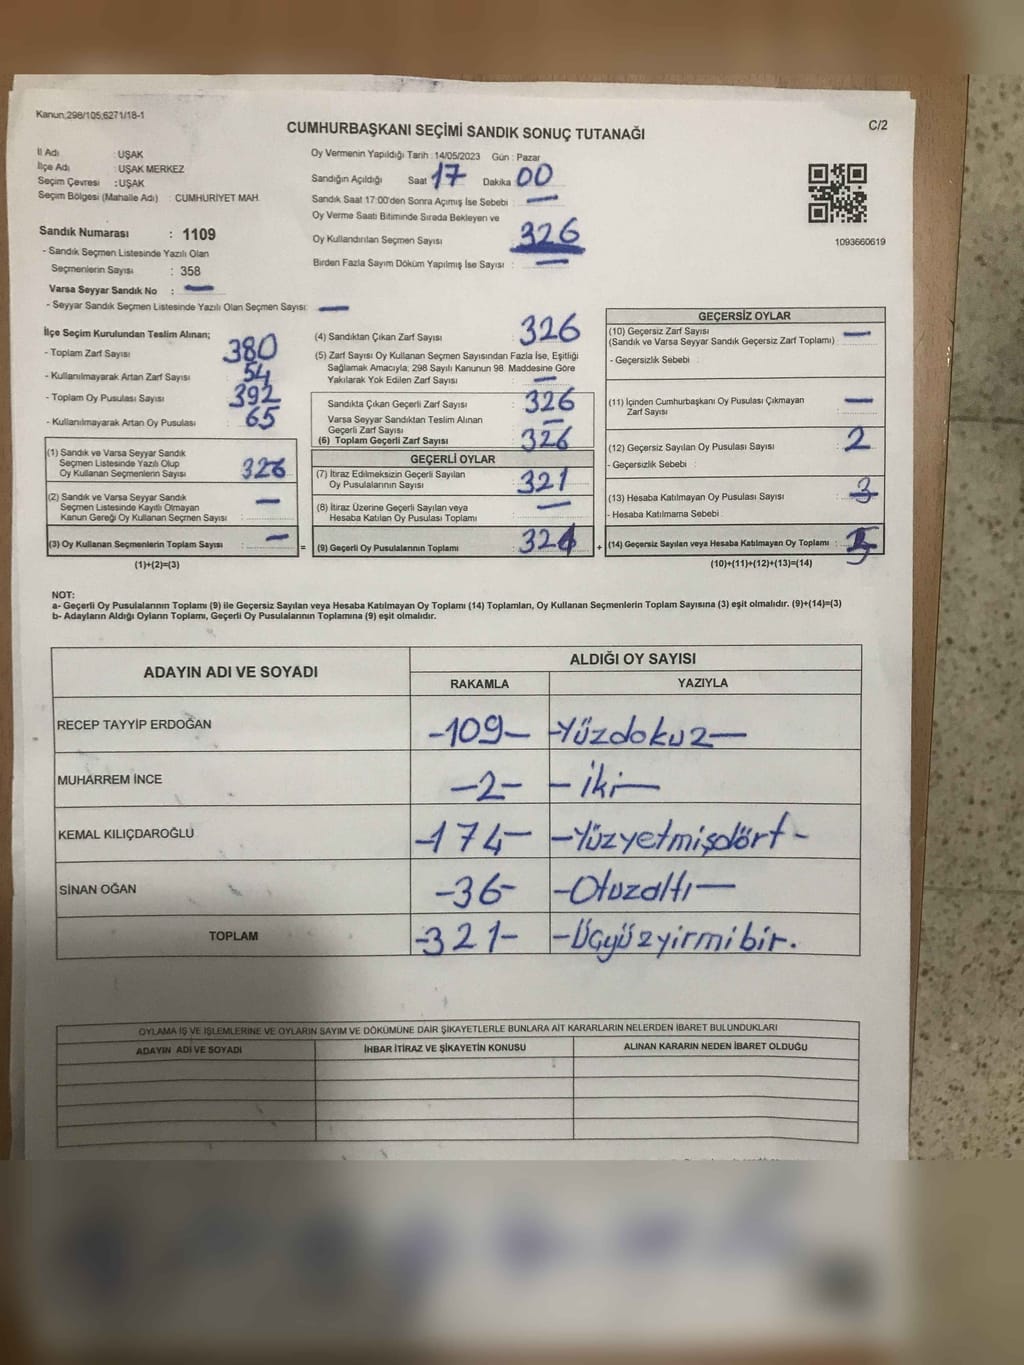 Kanun;298/105;6271/18-1
C/2
CUMHURBAŞKANI SEÇİMİ SANDIK SONUÇ TUTANAĞI
İl Adı : UŞAK
İlçe Adı : UŞAK MERKEZ
Seçim Çevresi : UŞAK
Seçim Bölgesi (Mahalle Adı) : CUMHURİYET MAH.
Sandık Numarası : 1109
- Sandık Seçmen Listesinde Yazılı Olan
Seçmenlerin Sayısı : 358
Varsa Seyyar Sandık No : —
- Seyyar Sandık Seçmen Listesinde Yazılı Olan Seçmen Sayısı: —
Oy Vermenin Yapıldığı Tarih : 14/05/2023 Gün : Pazar
Sandığın Açıldığı Saat 17 Dakika 00
Sandık Saat 17:00'den Sonra Açımış İse Sebebi : —
Oy Verme Saati Bitiminde Sırada Bekleyen ve
Oy Kullandırılan Seçmen Sayısı : 326
Birden Fazla Sayım Döküm Yapılmış İse Sayısı : —
1093660619
İlçe Seçim Kurulundan Teslim Alınan;
- Toplam Zarf Sayısı : 380
- Kullanılmayarak Artan Zarf Sayısı : 54
- Toplam Oy Pusulası Sayısı : 392
- Kullanılmayarak Artan Oy Pusulası : 65
(1) Sandık ve Varsa Seyyar Sandık
Seçmen Listesinde Yazılı Olup
Oy Kullanan Seçmenlerin Sayısı : 326
(2) Sandık ve Varsa Seyyar Sandık
Seçmen Listesinde Kayıtlı Olmayan
Kanun Gereği Oy Kullanan Seçmen Sayısı : —
(3) Oy Kullanan Seçmenlerin Toplam Sayısı : —
(1)+(2)=(3)
(4) Sandıktan Çıkan Zarf Sayısı : 326
(5) Zarf Sayısı Oy Kullanan Seçmen Sayısından Fazla İse, Eşitliği
Sağlamak Amacıyla; 298 Sayılı Kanunun 98. Maddesine Göre
Yakılarak Yok Edilen Zarf Sayısı : —
Sandıkta Çıkan Geçerli Zarf Sayısı : 326
Varsa Seyyar Sandıktan Teslim Alınan
Geçerli Zarf Sayısı : —
(6) Toplam Geçerli Zarf Sayısı : 326
GEÇERLİ OYLAR
(7) İtiraz Edilmeksizin Geçerli Sayılan
Oy Pusulalarının Sayısı : 321
(8) İtiraz Üzerine Geçerli Sayılan veya
Hesaba Katılan Oy Pusulası Toplamı : —
= (9) Geçerli Oy Pusulalarının Toplamı : 321 +
GEÇERSİZ OYLAR
(10) Geçersiz Zarf Sayısı
(Sandık ve Varsa Seyyar Sandık Geçersiz Zarf Toplamı) : —
- Geçersizlik Sebebi :
(11) İçinden Cumhurbaşkanı Oy Pusulası Çıkmayan
Zarf Sayısı : —
(12) Geçersiz Sayılan Oy Pusulası Sayısı : 2
- Geçersizlik Sebebi :
(13) Hesaba Katılmayan Oy Pusulası Sayısı : 3
- Hesaba Katılmama Sebebi :
(14) Geçersiz Sayılan veya Hesaba Katılmayan Oy Toplamı : 5
(10)+(11)+(12)+(13)=(14)
NOT:
a- Geçerli Oy Pusulalarının Toplamı (9) ile Geçersiz Sayılan veya Hesaba Katılmayan Oy Toplamı (14) Toplamları, Oy Kullanan Seçmenlerin Toplam Sayısına (3) eşit olmalıdır. (9)+(14)=(3)
b- Adayların Aldığı Oyların Toplamı, Geçerli Oy Pusulalarının Toplamına (9) eşit olmalıdır.
ADAYIN ADI VE SOYADI
ALDIĞI OY SAYISI
RAKAMLA YAZIYLA
RECEP TAYYİP ERDOĞAN -109- -Yüzdokuz-
MUHARREM İNCE -2- -İki-
KEMAL KILIÇDAROĞLU -174- -Yüzyetmişdört-
SİNAN OĞAN -36- -Otuzaltı-
TOPLAM -321- -Üçyüzyirmibir.
OYLAMA İŞ VE İŞLEMLERİNE VE OYLARIN SAYIM VE DÖKÜMÜNE DAİR ŞİKAYETLERLE BUNLARA AİT KARARLARIN NELERDEN İBARET BULUNDUKLARI
ADAYIN ADI VE SOYADI İHBAR İTİRAZ VE ŞİKAYETİN KONUSU ALINAN KARARIN NEDEN İBARET OLDUĞU